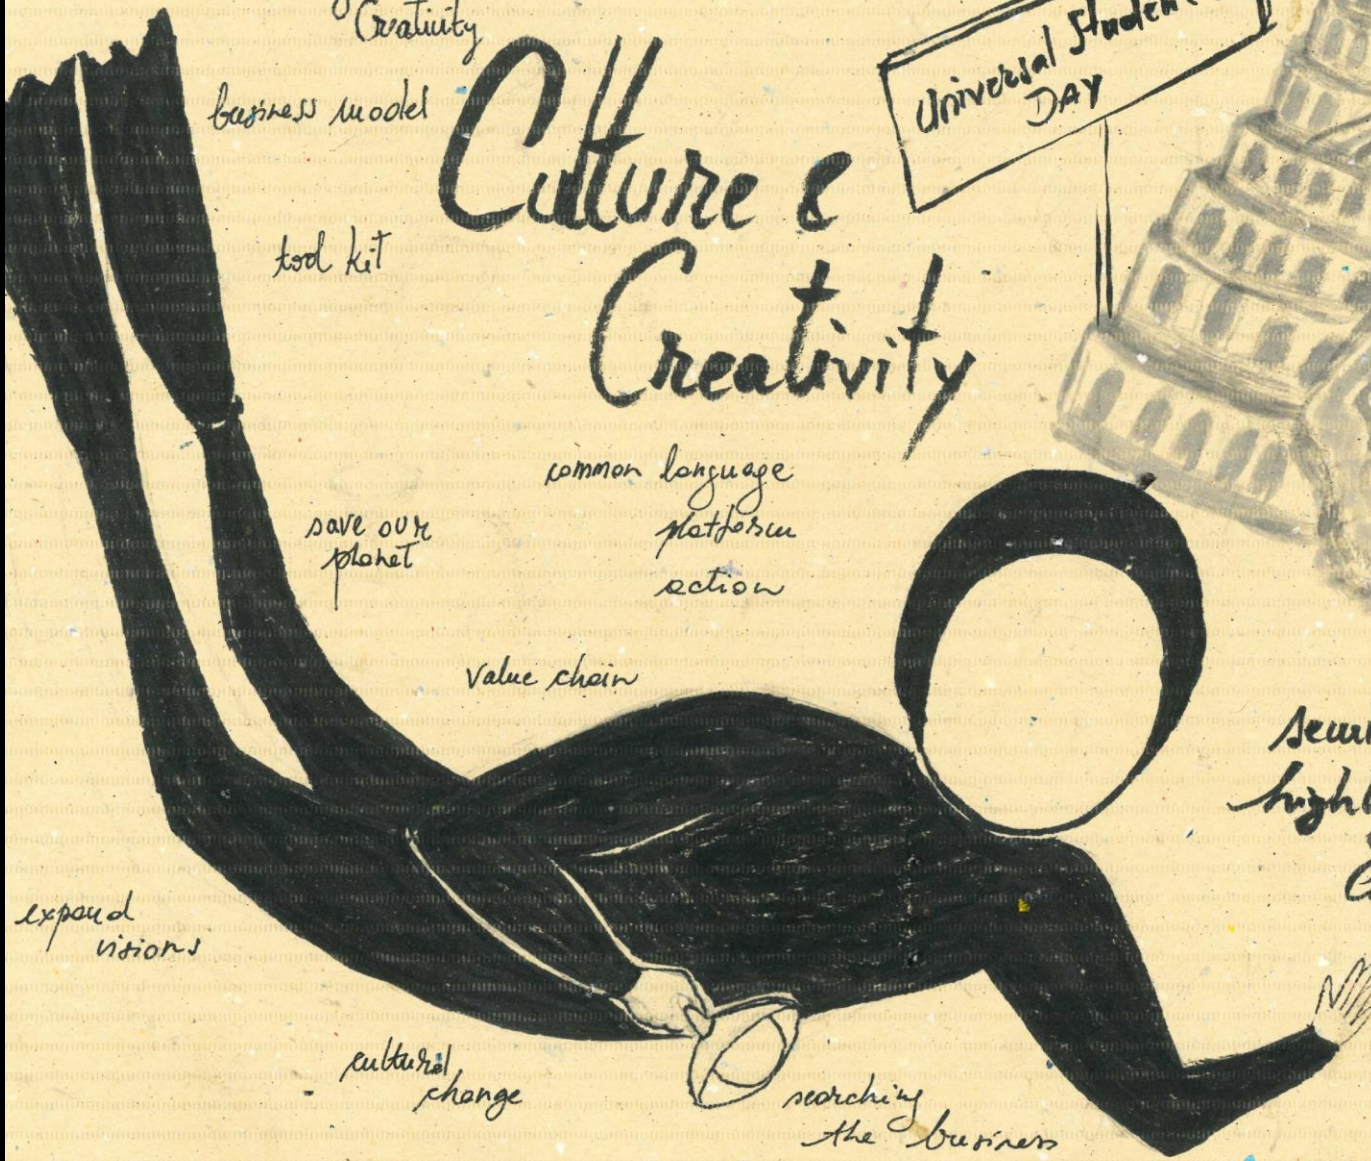 Creativity
business model
Culture &
Creativity
Universal Student
DAY
tool kit
common language
platform
action
save our
planet
value chain
high
expand
visions
cultural
change
searching
the business